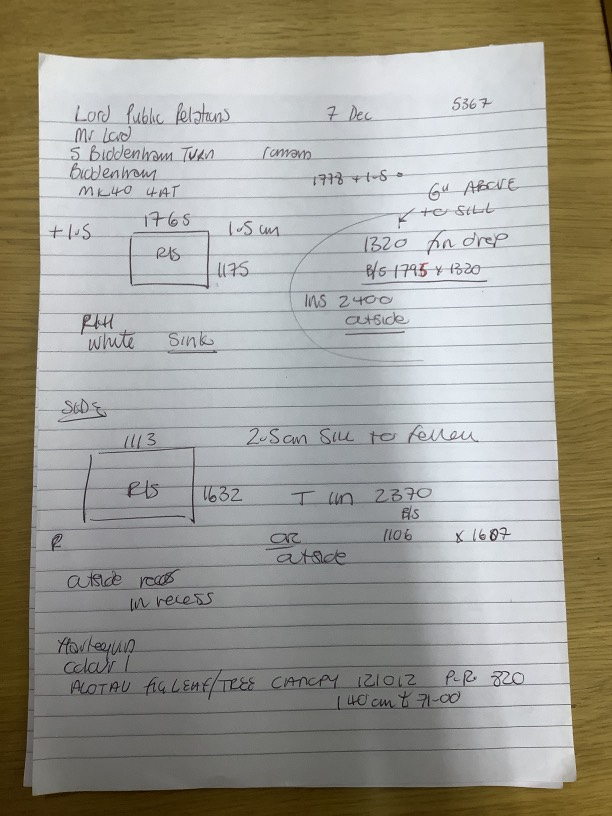 Lord Public Relations 7 Dec 5367
Mr Lord
5 Biddenham TURN roman
Biddenham
MK40 4AT 1778 + 1.5
6" ABOVE
to SILL
+1.5 1765 1.5 cm
R/S 1320 fin drop
1175 B/S 1795 x 1320
INS 2400
outside
RHH
white sink
SIDE
1113 2.5cm Sill to follow
R/S 1632 T in 2370
B/S
R or 1106 x 1607
outside
outside
in recess
Harlequin
colour 1
ALOTAU fig LEAF/TREE CANOPY 121012 P.R. 320
140cm £ 71-00